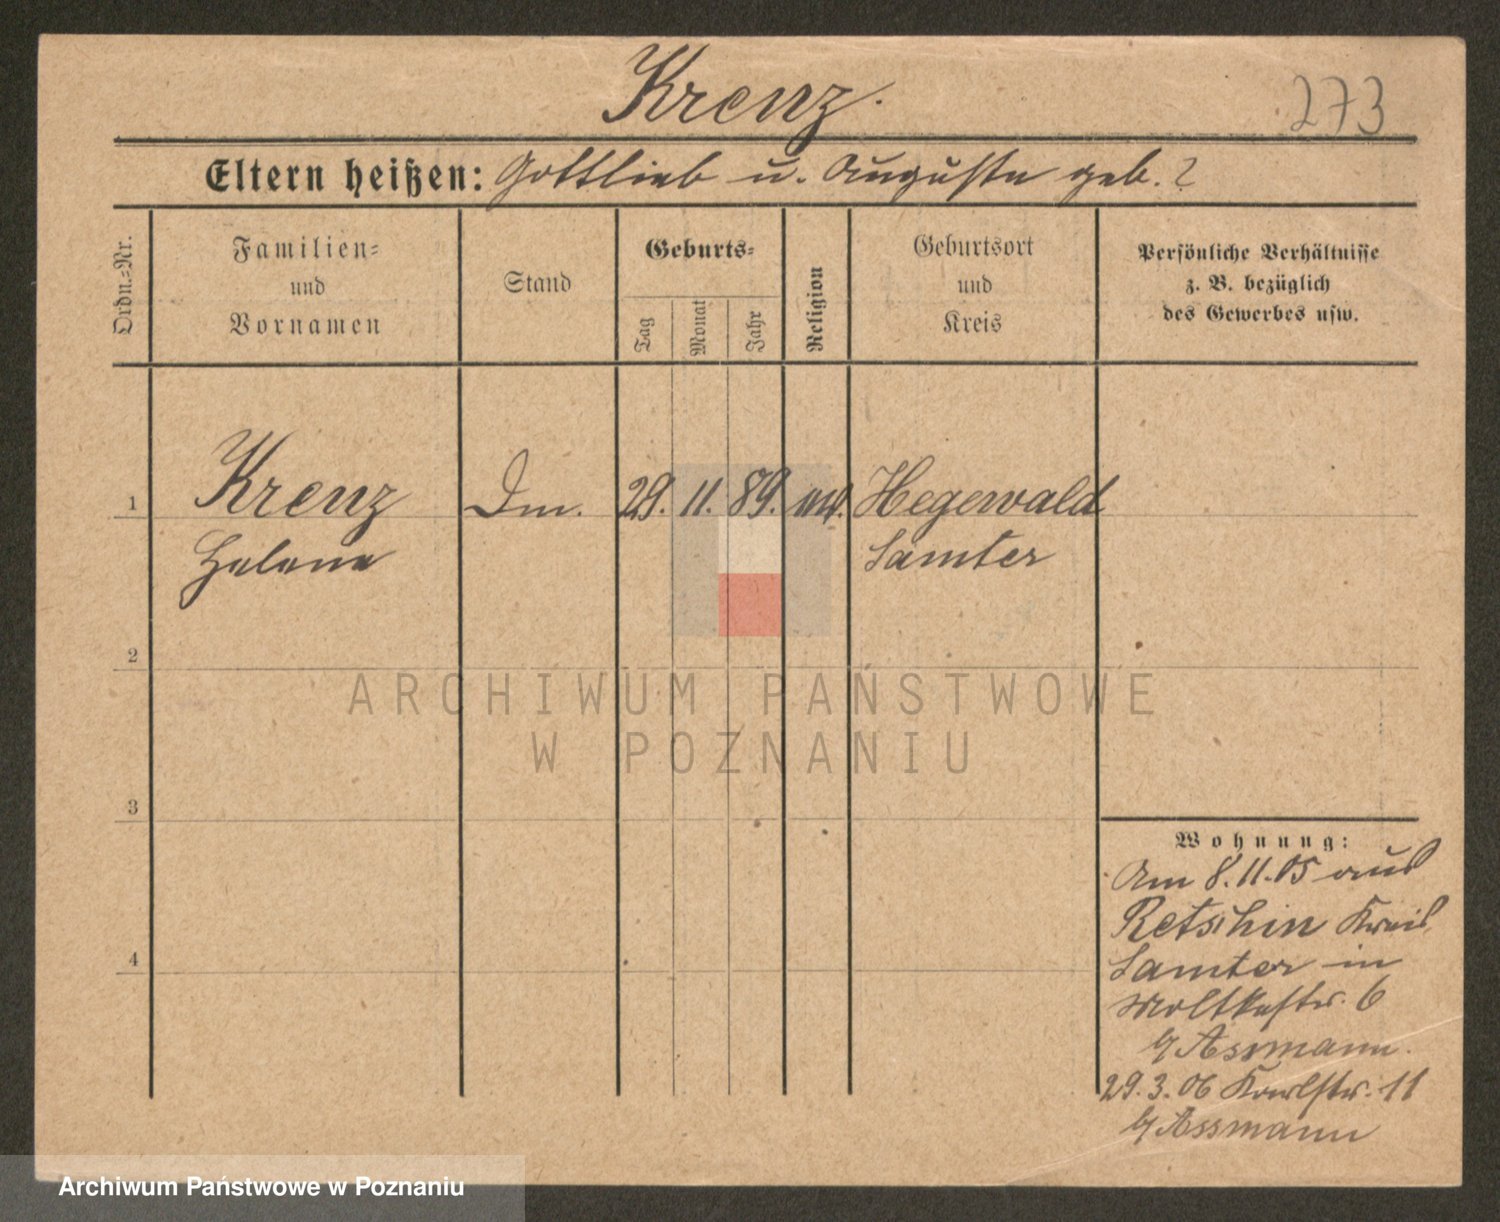 Krenz.
273
Eltern heißen: Gottlieb u. Auguste geb. ?
Ordn.=Nr.
Familien=
und
Vornamen
Stand
Geburts=
Tag
Monat
Jahr
Religion
Geburtsort
und
Kreis
Persönliche Verhältnisse
z. B. bezüglich
des Gewerbes usw.
1
Krenz
Helene
Dm.
29. 11. 89.
ev.
Hegewald
Samter
2
ARCHIWUM PAŃSTWOWE
W POZNANIU
3
4
Wohnung:
Am 8.11.05 aus
Retschin Kreis
Samter in
Moltkestr. 6
b/ Assmann.
29.3.06 Karlstr. 11
b/ Assmann
Archiwum Państwowe w Poznaniu